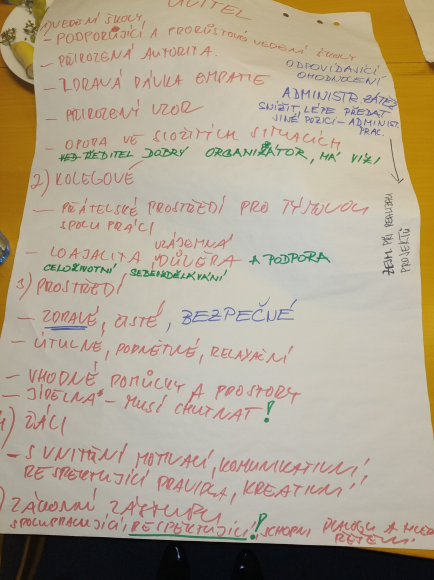 UČITEL
1) VEDENÍ ŠKOLY,
- PODPORUJÍCÍ A PRORŮSTOVÉ VEDENÍ ŠKOLY
- PŘIROZENÁ AUTORITA.
- ZDRAVÁ DÁVKA EMPATIE
- PŘIROZENÝ VZOR
- OPORA VE SLOŽITÝCH SITUACÍCH
ŘEDITEL DOBRÝ ORGANIZÁTOR, MÁ VIZI
ODPOVÍDAJÍCÍ
OHODNOCENÍ
ADMINISTR. ZÁTĚŽ
SNÍŽIT, LÉPE PŘEDAT
JINÉ POZICI - ADMINIST.
PRAC.
ZEJM. PŘI REALIZACI
PROJEKTŮ
2) KOLEGOVÉ
- PŘÁTELSKÉ PROSTŘEDÍ PRO TÝMOVOU
SPOLUPRÁCI
- LOAJALITA, VZÁJEMNÁ DŮVĚRA A PODPORA
CELOŽIVOTNÍ SEBEVZDĚLÁVÁNÍ
3) PROSTŘEDÍ
- ZDRAVÉ, ČISTÉ, BEZPEČNÉ
- ÚTULNÉ, PODNĚTNÉ, RELAXAČNÍ
- VHODNÉ POMŮCKY A PROSTORY
- JÍDELNA - MUSÍ CHUTNAT!
4) ŽÁCI
- S VNITŘNÍ MOTIVACÍ, KOMUNIKATIVNÍ
RESPEKTUJÍCÍ PRAVIDLA, KREATIVNÍ
) ZÁKONNÍ ZÁSTUPCI
SPOLUPRACUJÍCÍ, RESPEKTUJÍCÍ! SCHOPNI DIALOGU A HLEDÁ
ŘEŠENÍ